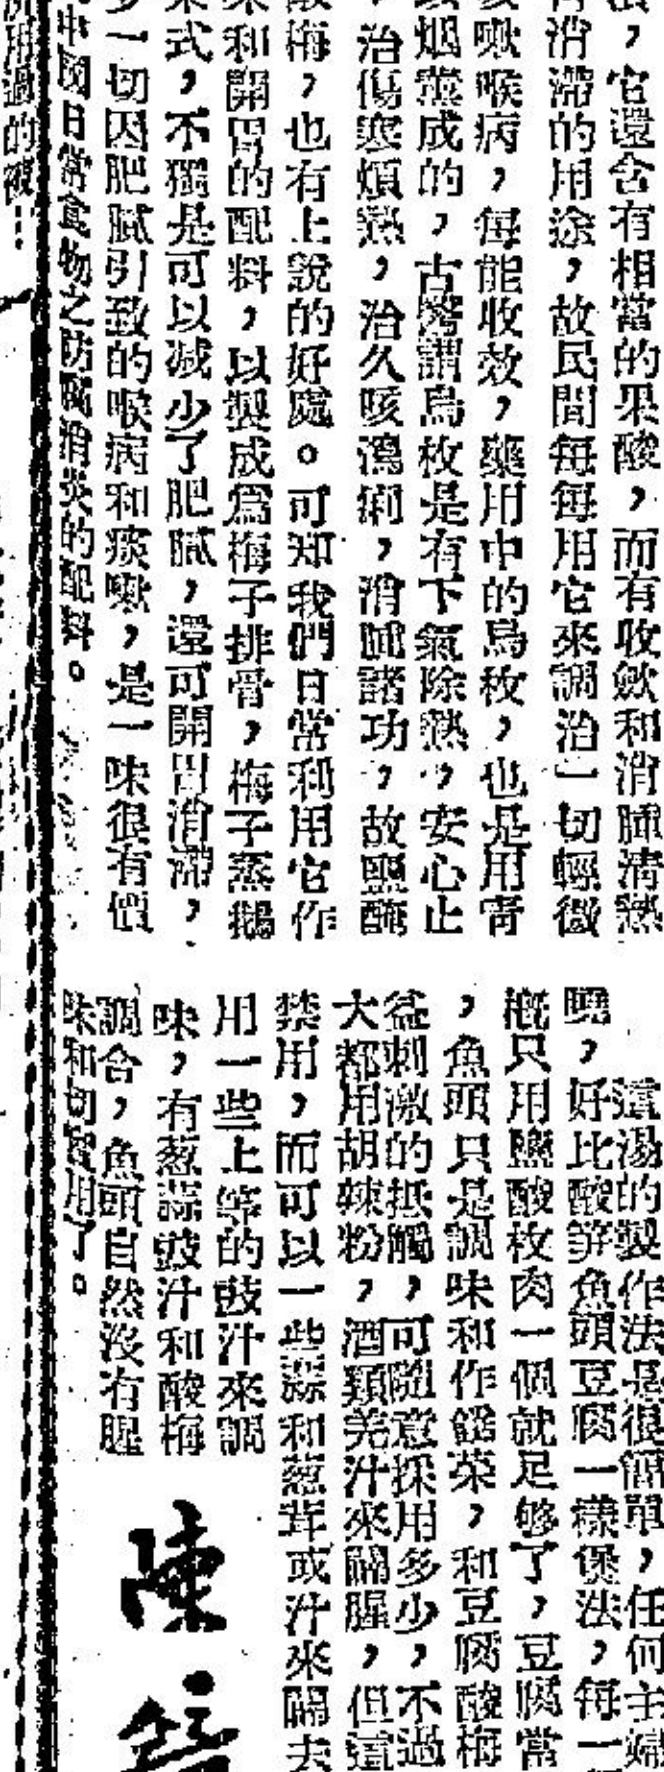 漬，它還含有相當的果酸，而有收斂和消腫清熱
消滯的用途，故民間每每用它來調治一切輕微
嗽喉病，每能收效，藥用中的烏枚，也是用靑
烟薰成的，古醫謂烏枚是有下氣除熱，安心止
，治傷寒煩熱，治久咳瀉痢，消腫諸功，故鹽醃
酸梅，也有上說的好處。可知我們日常利用它作
來和開胃的配料，以製成爲梅子排骨，梅子蒸鵝
菜式，不獨是可以减少了肥膩，還可開胃消滯，
少一切因肥膩引致的喉病和痰嗽，是一味很有價
中國日常食物之防腐消炎的配料。
這湯的製作法是很簡單，任何主婦
曉，好比酸笋魚頭豆腐一樣煲法，每一
概只用鹽酸枚肉一個就足够了，豆腐當
，魚頭只是調味和作餸菜，和豆腐酸梅
益刺激的抵觸，可隨意採用多少，不過
大都用胡辣粉，酒類羌汁來闢腥，但這
禁用，而可以一些蒜和葱茸或汁來闢去
用一些上等的豉汁來調
味，有葱蒜豉汁和酸梅
調合，魚頭自然沒有腥
味和切實用了。
陳
用過的被…